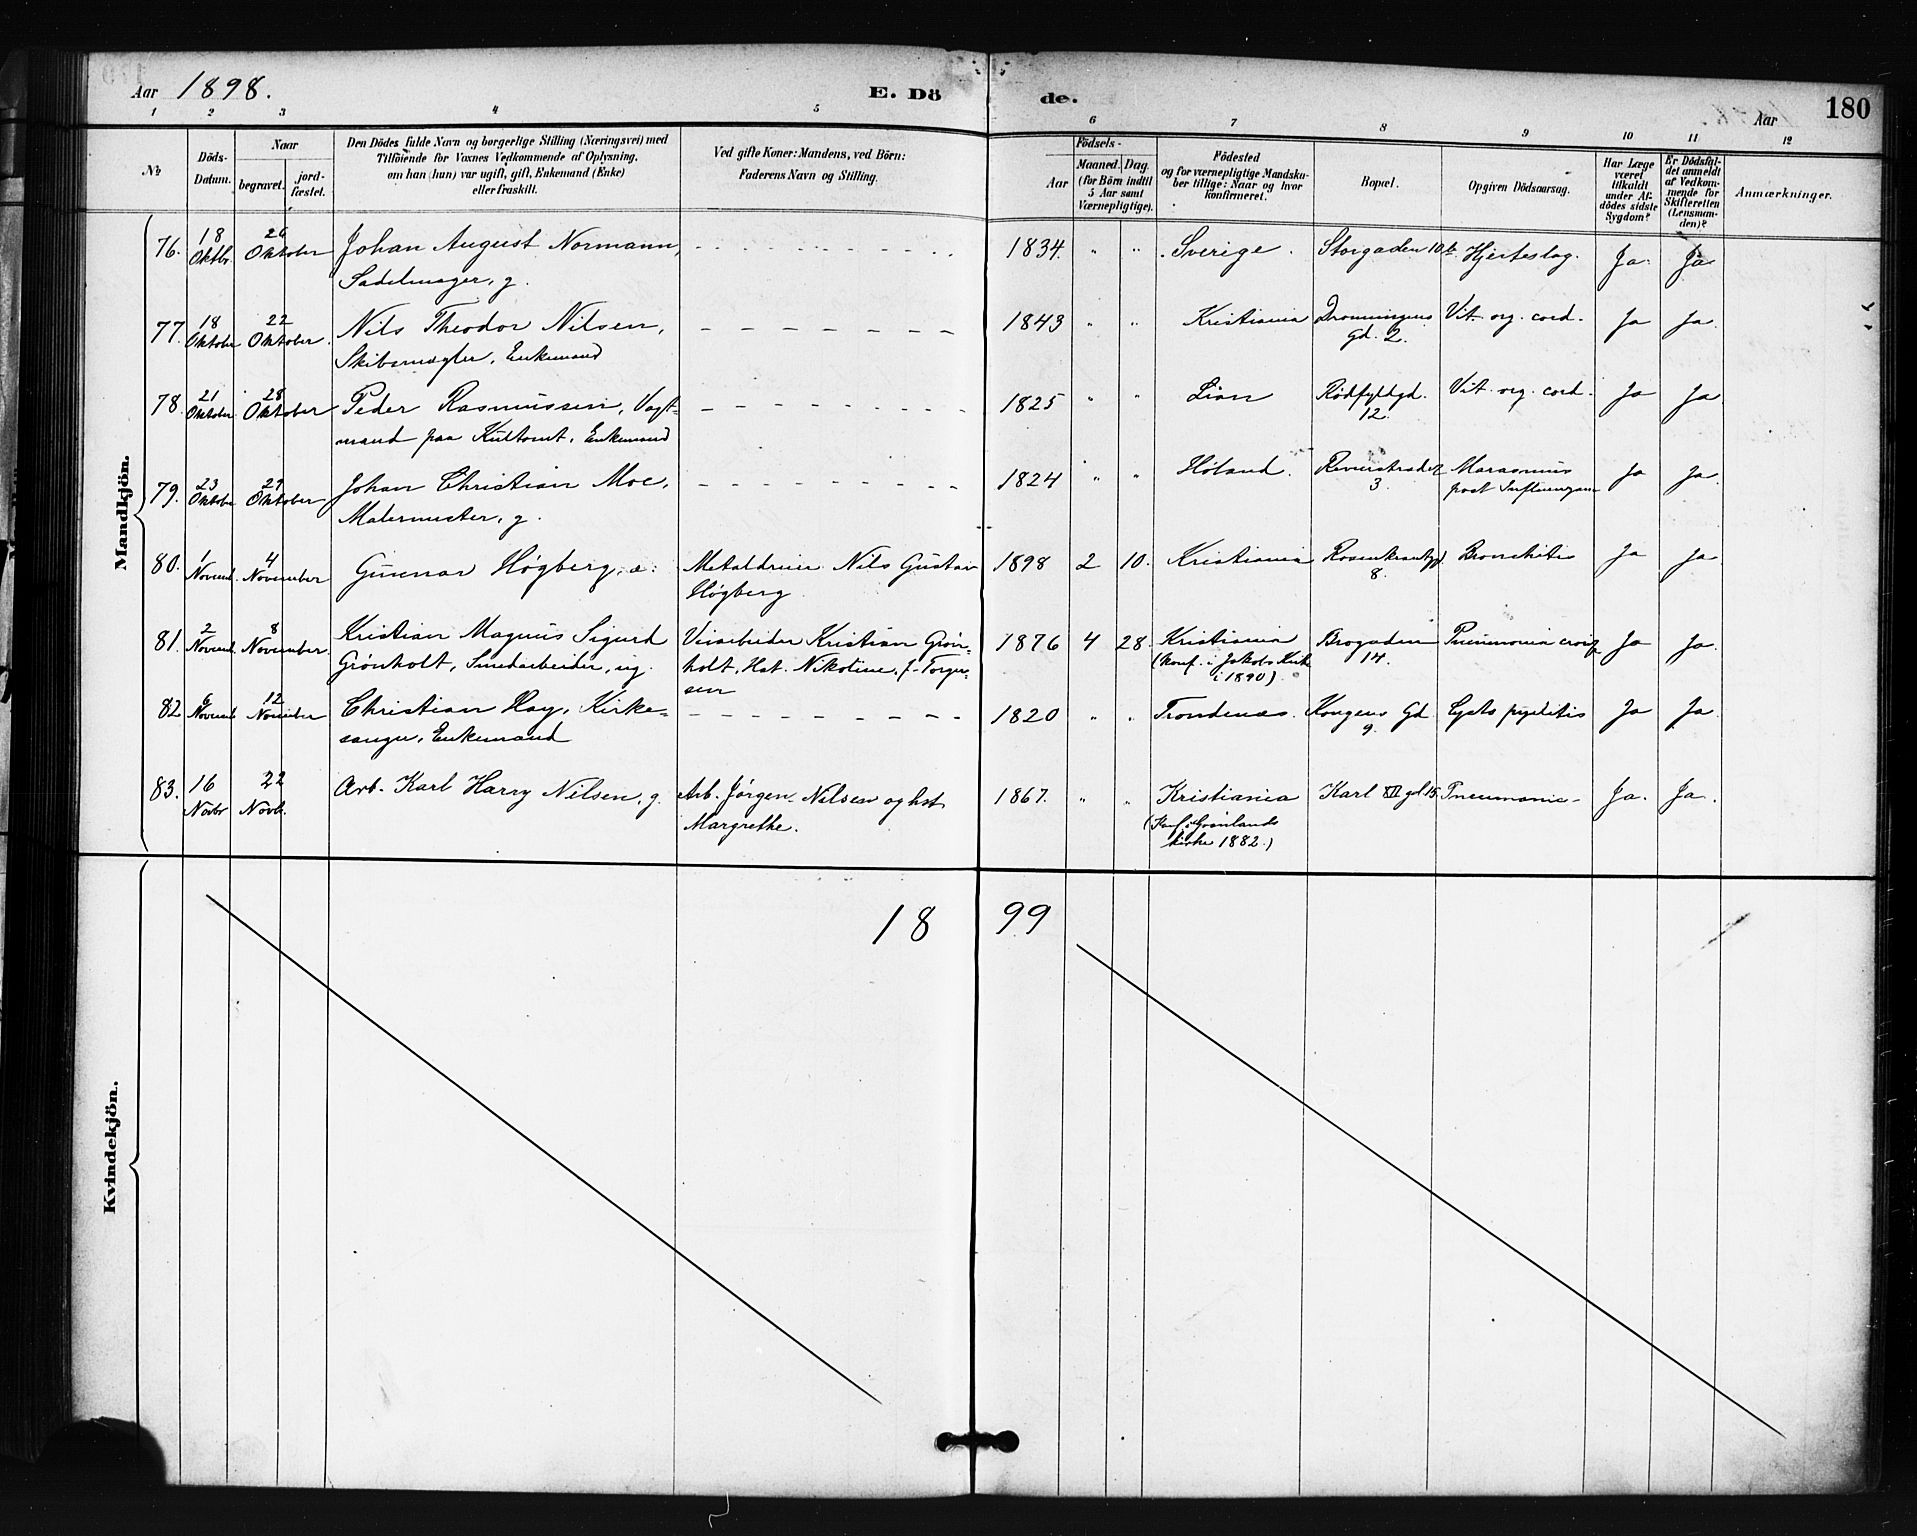 Aar 1898. E. Dö de. Aar 180
1 2 3 4 5 6 7 8 9 10 11 12
№
Döds-Datum.
Naar
begravet.
jordfæstet.
Den Dödes fulde Navn og borgerlige Stilling (Næringsvei) med
Tilföiende for Voxnes Vedkommende af Oplysning,
om han (hun) var ugift, gift, Enkemand (Enke)
eller fraskilt.
Ved gifte Koner: Mandens, ved Börn:
Faderens Navn og Stilling.
Födsels-
Aar
Maaned. Dag.
(for Börn indtil
5 Aar samt
Værnepligtige).
Födested
og for værnepligtige Mandskaber tillige: Naar og hvor
konfirmeret.
Bopæl.
Opgiven Dödsaarsag.
Har Læge
været
tilkaldt
under Afdödes sidste
Sygdom?
Er Dödsfaldet anmeldt
af Vedkommende for
Skifteretten
(Lensmanden)?
Anmærkninger.
Mandkjön.
76. 18 Oktbr. 26 Oktober Johan August Normann, 1834. " " Sverige. Storgaden 10b. Hjerteslag. Ja. Ja
Sadelmager, g.
77. 18 Oktober 22 Oktober. Nils Theodor Nilsen, 1843 " " Kristiania Dronningens Gd. 2. Vit. org. cord. Ja Ja.
Skibsmægler, Enkemand
78. 21 Oktober 28 Oktober Peder Rasmussen, Vagt- 1825 " " Rødfyldgd. 12. Vit. org. cord. Ja Ja
mand paa , Enkemand
79. 23 Oktober 29 Oktober Johan Christian Moe, 1824 " " Høland. 3. Marasmus Ja Ja.
Malermester, g. post Influenzam
80. 1 Novemb. 4 November Gunnar Høgberg, æ. Metaldreier Nils Gustav 1898 2 10. Kristiania Rosenkrantzgd. 8. Bronchitis Ja Ja
Høgberg
81. 2 Novemb. 8 November. Kristian Magnus Sigurd Veiarbeider Kristian Grøn- 1876 4 28. Kristiania Brogaden 14. Pneumonia croup. Ja Ja.
Grønholt, Smedarbeider, ug. holt, Hst. Nikoline, f. Torger- (Konf. i Jakobs Kirke
sen i 1890)
82 6 Novemb. 12 November Christian Hay, Kirke- 1820 " " Trondenæs. Kongens Gd. 9. Cysto pyelitis Ja Ja.
sanger, Enkemand
83. 16 Novbr 22 Novb. Arb. Karl Harry Nilsen, g. Arb. Jørgen Nilsen og hst. 1867. " " Kristiania Karl XII gd. 15. Pneumonia Ja. Ja.
Margrethe. (Konf. i Grønlands
kirke 1882.)
Kvindekjön.
18 99